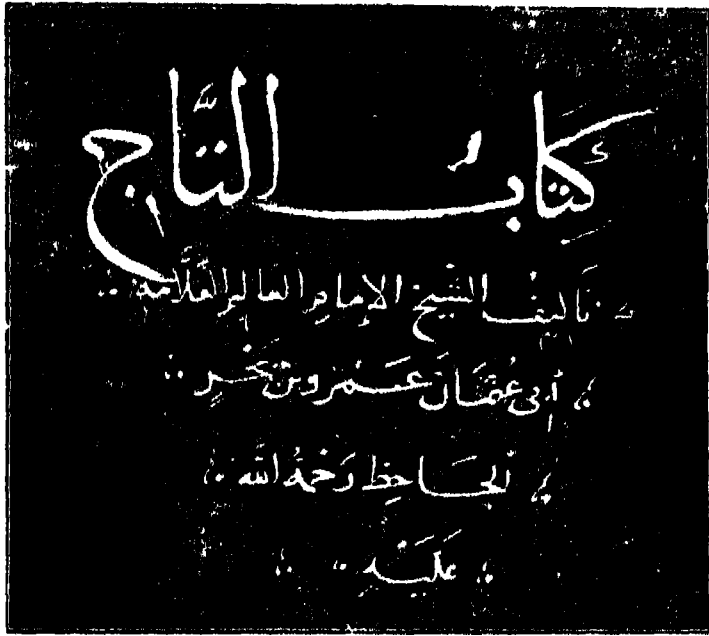 كِتَابُ التَّاج
تَأليف الشيخ الإمامِ العالم العَلَّامة
أبى عُثمَانَ عَمْرو بن بَحْرٍ
الجَاحِظ رَحْمَةُ اللّه
عَلَيْهِ